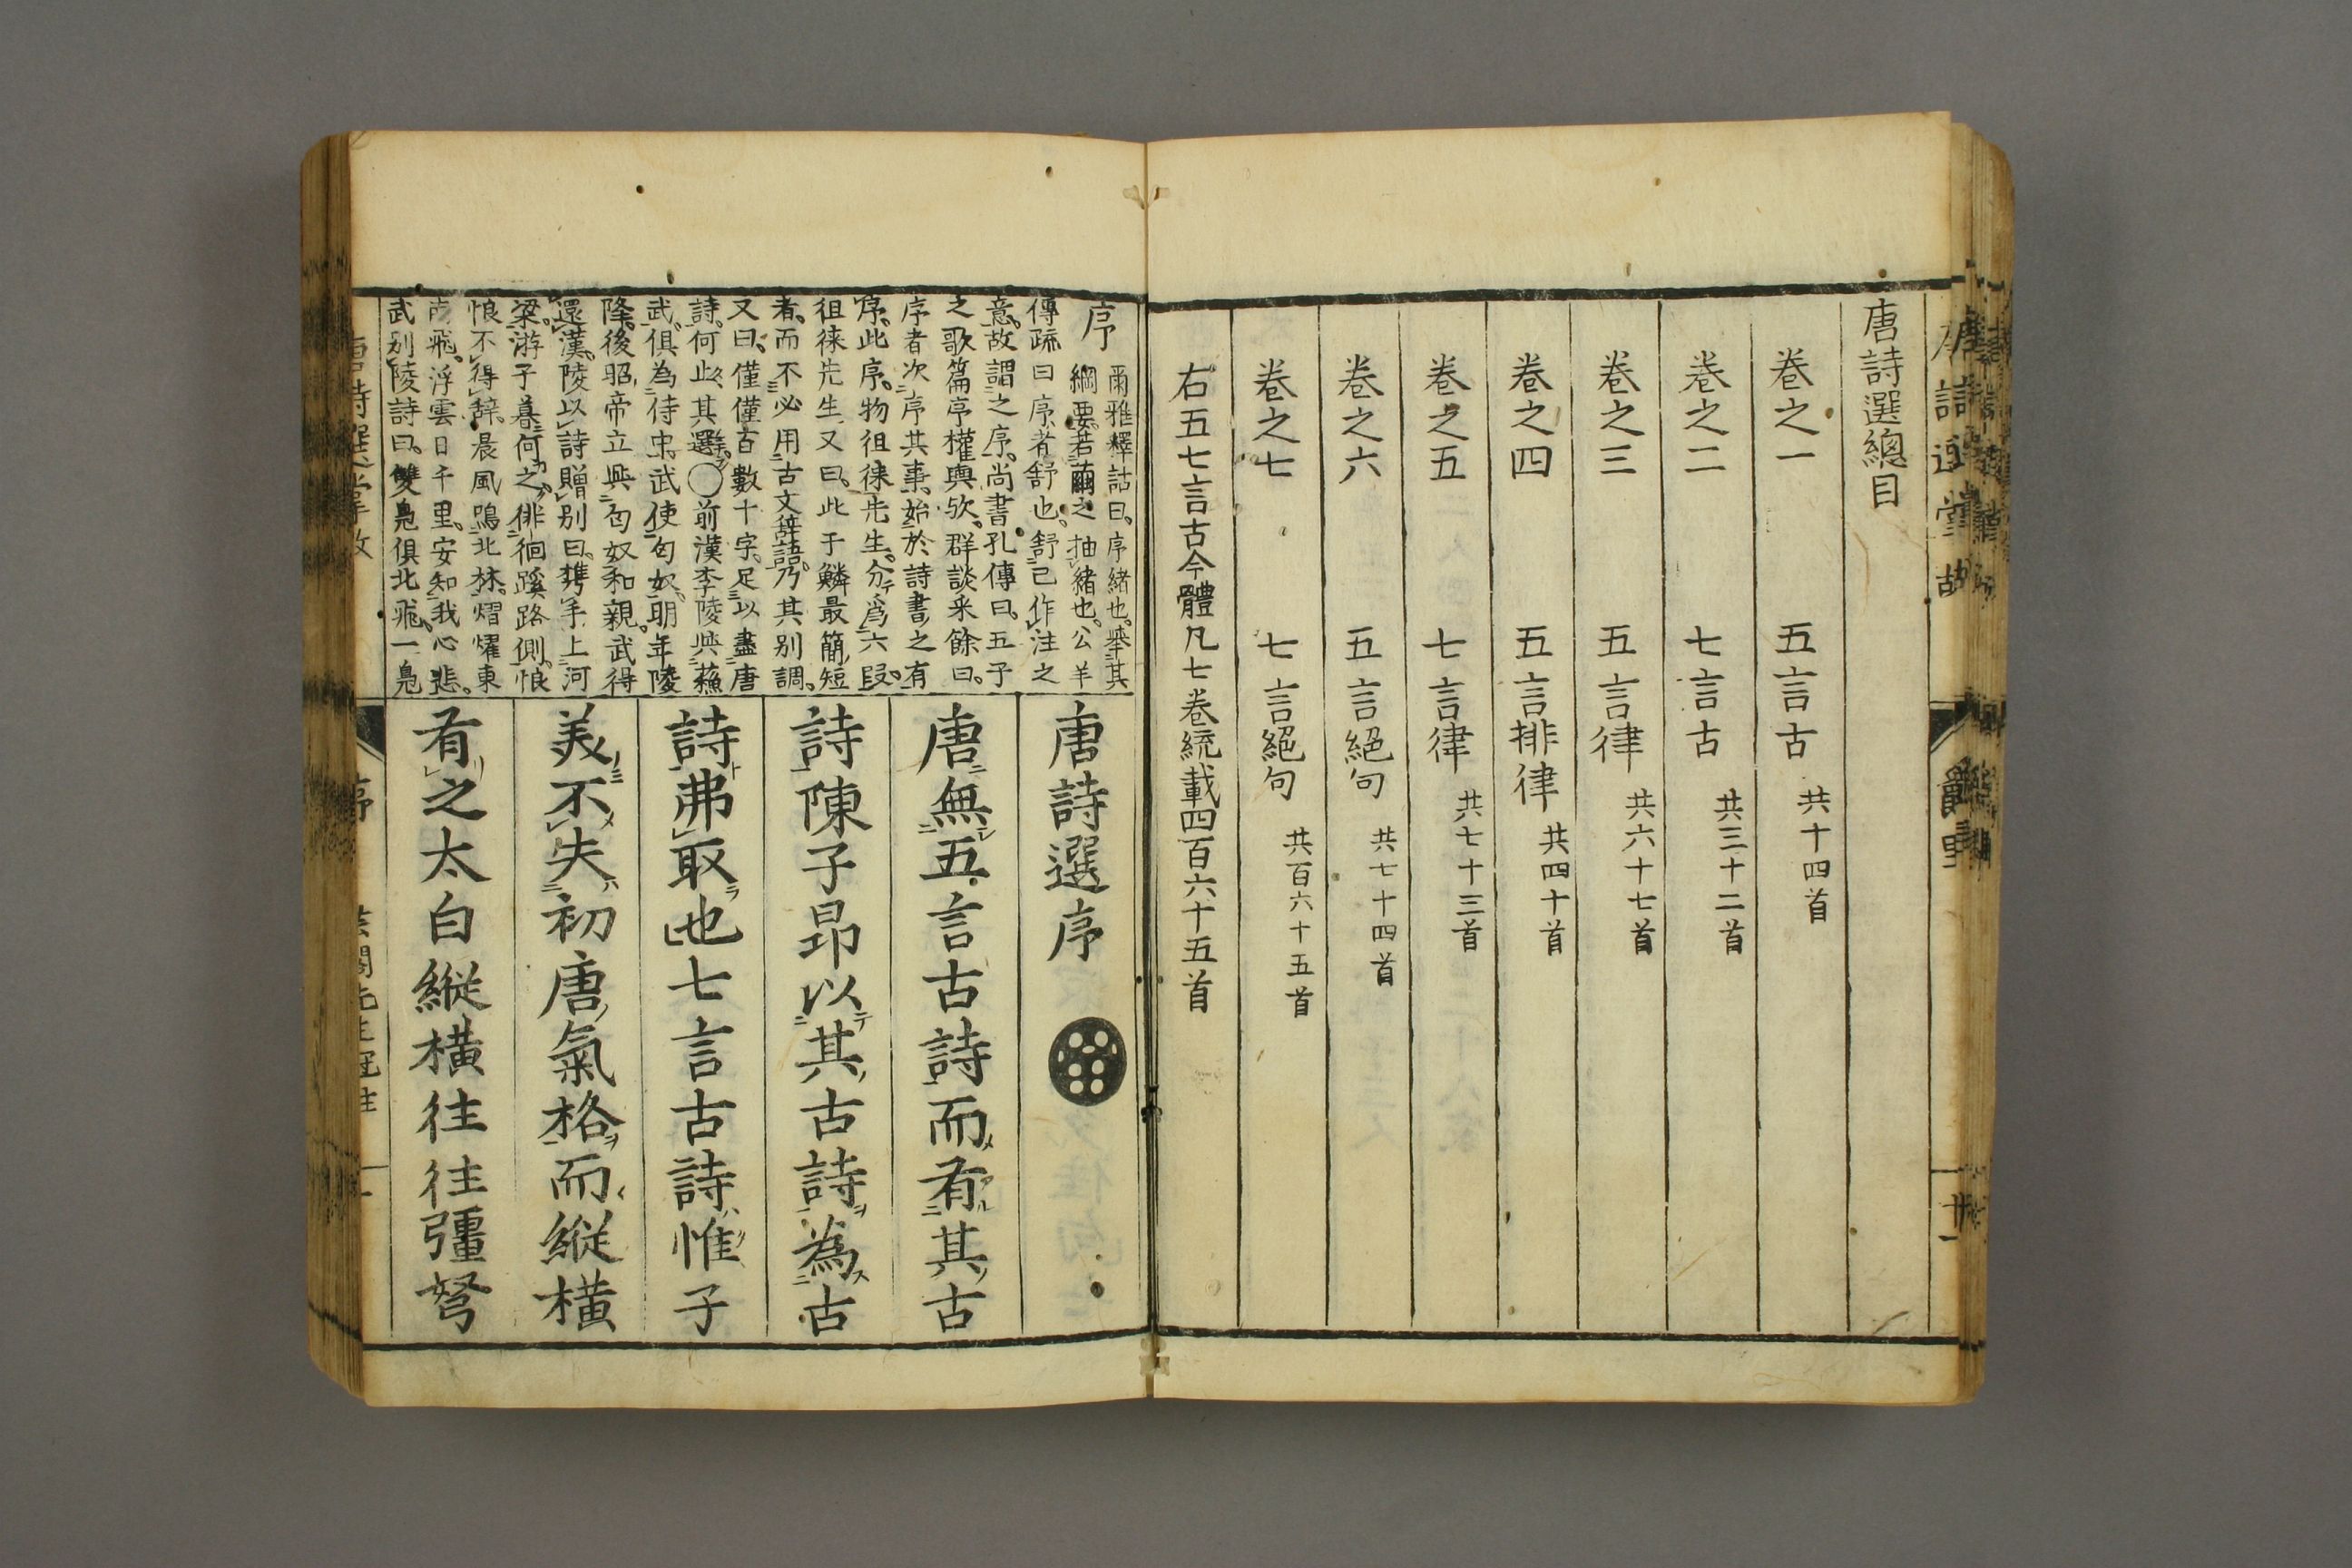 唐詩選總目
卷之一 五言古 共十四首
卷之二 七言古 共三十二首
卷之三 五言律 共六十七首
卷之四 五言排律 共四十首
卷之五 七言律 共七十三首
卷之六 五言絕句 共七十四首
卷之七 七言絕句 共百六十五首
右五七言古今體凡七卷統載四百六十五首
序 爾雅釋詁曰序緒也舉其
綱要若繭之抽緒也公羊
傳疏曰序者舒也舒己作注之
意故謂之序尚書孔傳曰五子
之歌篇序權輿欤群談采餘曰
序者次序其事始於詩書之有
序此序物徂徠先生分爲六段
徂徠先生又曰此于鱗最簡短
者而不必用古文辭語乃其別調
又曰僅僅百數十字足以盡唐
詩何止其選〇前漢李陵與蘇
武俱為侍中武使匈奴明年陵
降後昭帝立與匈奴和親武得
還漢陵以詩贈別曰携手上河
梁游子暮何之徘徊蹊路側悢
悢不得辞晨風鳴北林熠燿東
南飛浮雲日千里安知我心悲
武別陵詩曰雙鳧俱北飛一鳧
唐詩選序
唐無五言古詩而有其古
詩陳子昂以其古詩為古
詩弗取也七言古詩惟子
美不失初唐氣格而縱橫
有之太白縱橫往往彊弩